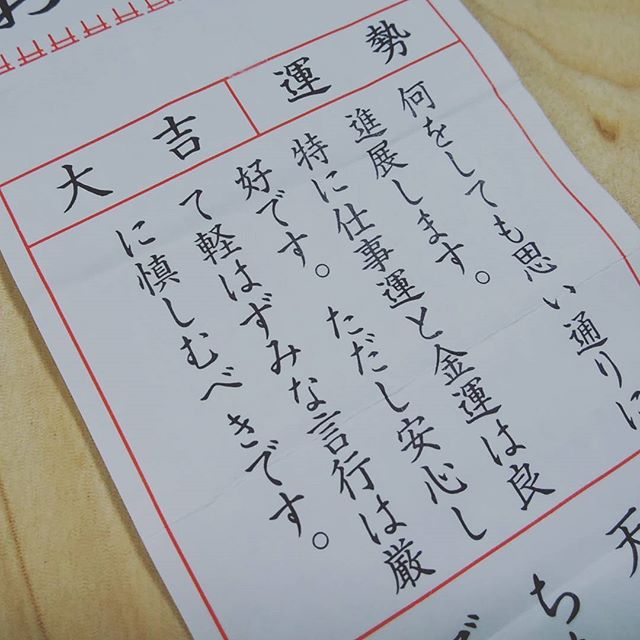 運勢
大吉
何をしても思い通りに
進展します。
特に仕事運と金運は良
好です。ただし安心し
て軽はずみな言行は厳
に慎しむべきです。
天
ち
で
お